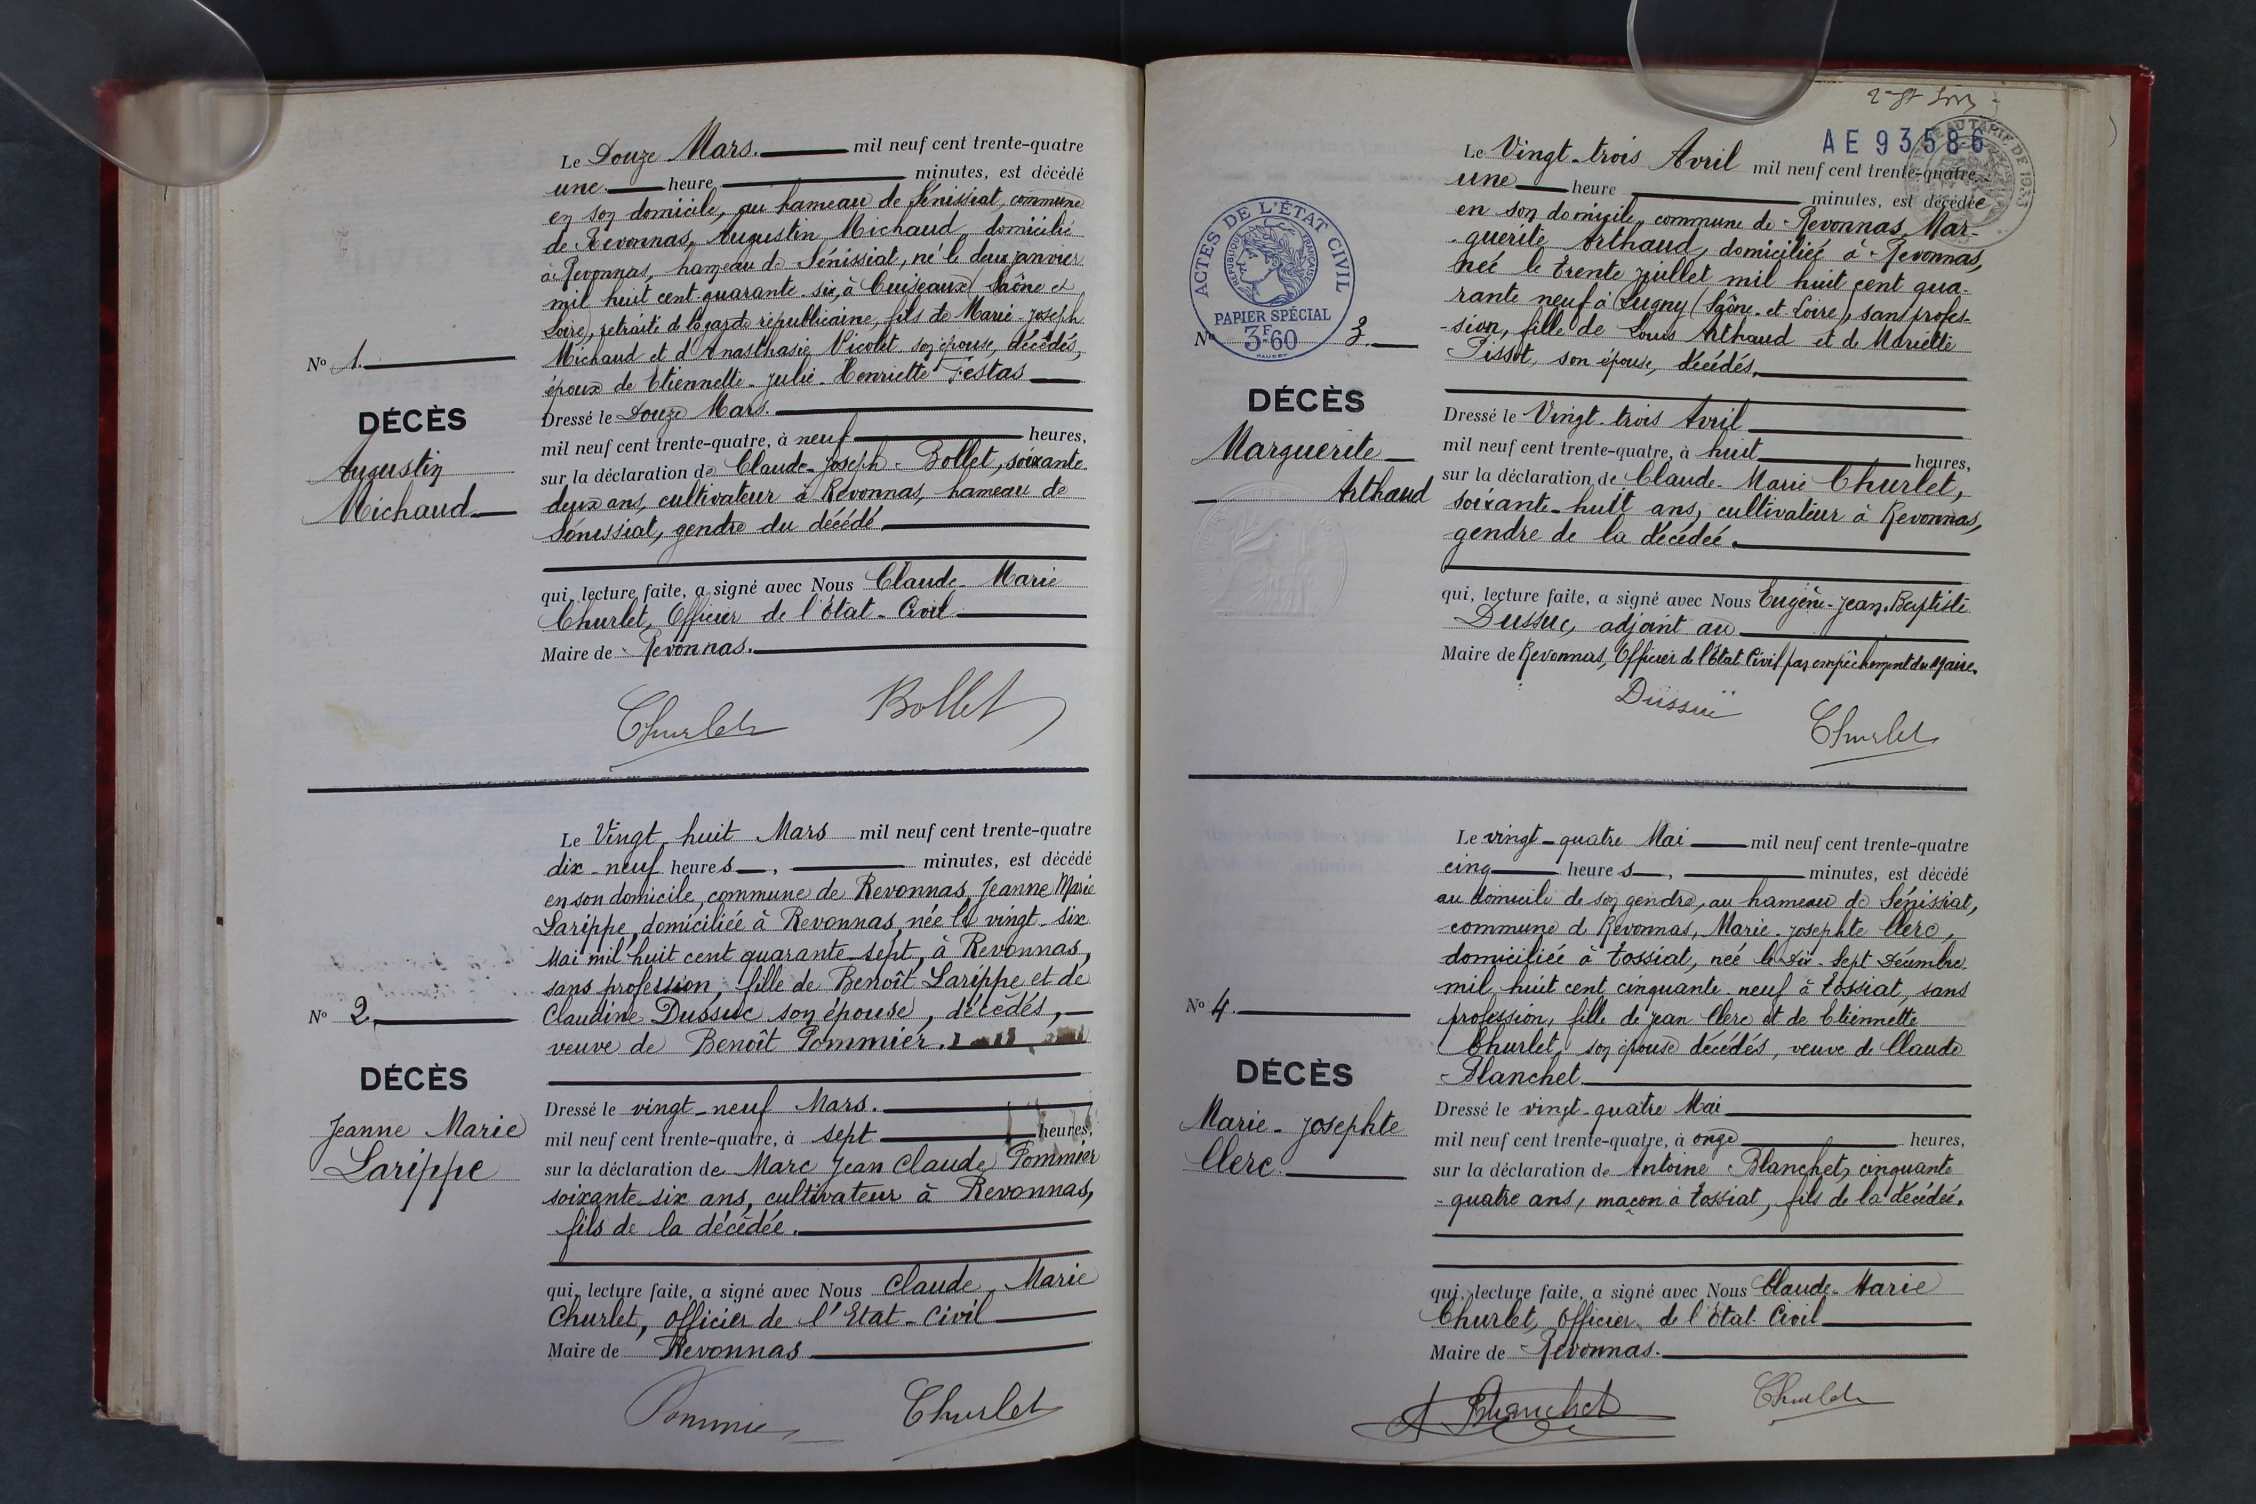 Le Douze Mars. mil neuf cent trente-quatre
une heure minutes, est décédé
en son domicile, au hameau de Sénissiat, commune
de Revonnas, Augustin Michaud, domicilié
à Revonnas, hameau de Sénissiat, né le deux janvier
mil huit cent quarante-six, à Cuiseaux (Saône et
Loire), retraité de la garde républicaine, fils de Marie-Joseph
Michaud et d'Anasthasie Nicolet son épouse, décédés,
époux de Etiennette-Julie-Henriette Festas
Nº 1.
DÉCÈS
Augustin
Michaud
Dressé le Douze Mars.
mil neuf cent trente-quatre, à neuf heures,
sur la déclaration de Claude-Joseph-Bollet, soixante
deux ans, cultivateur à Revonnas, hameau de
Sénissiat, gendre du décédé
qui, lecture faite, a signé avec Nous Claude-Marie
Churlet, Officier de l'État-Civil
Maire de Revonnas.
Churlet Bollet
Le Vingt huit Mars mil neuf cent trente-quatre
dix-neuf heures, minutes, est décédé
en son domicile, commune de Revonnas, Jeanne Marie
Larippe, domiciliée à Revonnas, née le vingt-six
Mai mil huit cent quarante-sept, à Revonnas,
sans profession, fille de Benoît Larippe et de
Claudine Dussuc son épouse, décédés,
veuve de Benoît Pommier.
Nº 2
DÉCÈS
Jeanne Marie
Larippe
Dressé le vingt-neuf Mars.
mil neuf cent trente-quatre, à sept heures,
sur la déclaration de Marc Jean Claude Pommier
soixante-six ans, cultivateur à Revonnas,
fils de la décédée.
qui, lecture faite, a signé avec Nous Claude, Marie
Churlet, officier de l'Etat-Civil
Maire de Revonnas
Pommier Churlet
AE 93586
TARIF DE 1933
Le Vingt-trois Avril mil neuf cent trente-quatre
une heure minutes, est décédée
en son domicile, commune de Revonnas, Mar-
-guerite Arthaud, domiciliée à Revonnas,
née le trente juillet mil huit cent qua-
rante neuf à Lugny (Saône-et-Loire), sans profes-
-sion, fille de Louis Arthaud et de Mariette
Pissot, son épouse, décédés.
ACTES DE L'ÉTAT CIVIL
RÉPUBLIQUE FRANÇAISE
PAPIER SPÉCIAL
3F60
Nº 3
DÉCÈS
Marguerite
Arthaud
Dressé le Vingt-trois Avril
mil neuf cent trente-quatre, à huit heures,
sur la déclaration de Claude-Marie Churlet,
soixante-huit ans, cultivateur à Revonnas,
gendre de la décédée.
qui, lecture faite, a signé avec Nous Eugène-Jean-Baptiste
Dussuc, adjoint au
Maire de Revonnas, Officier de l'État Civil par empêchement du Maire.
Dussuc Churlet
Le vingt-quatre Mai mil neuf cent trente-quatre
cinq heures, minutes, est décédé
au domicile de son gendre, au hameau de Sénissiat,
commune d Revonnas, Marie-Josephte Clerc,
domiciliée à Tossiat, née le Dix-Sept Décembre
mil huit cent cinquante-neuf à Tossiat, sans
profession, fille de Jean Clerc et de Etiennette
Churlet, son épouse décédés, veuve de Claude
Blanchet
Nº 4.
DÉCÈS
Marie-Josephte
Clerc.
Dressé le vingt-quatre Mai
mil neuf cent trente-quatre, à onze heures,
sur la déclaration de Antoine Blanchet, cinquante
-quatre ans, maçon à Tossiat, fils de la décédée.
qui, lecture faite, a signé avec Nous Claude-Marie
Churlet, Officier de l'État-Civil
Maire de Revonnas.
A Blanchet Churlet